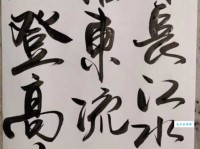 長江水
東流
登高